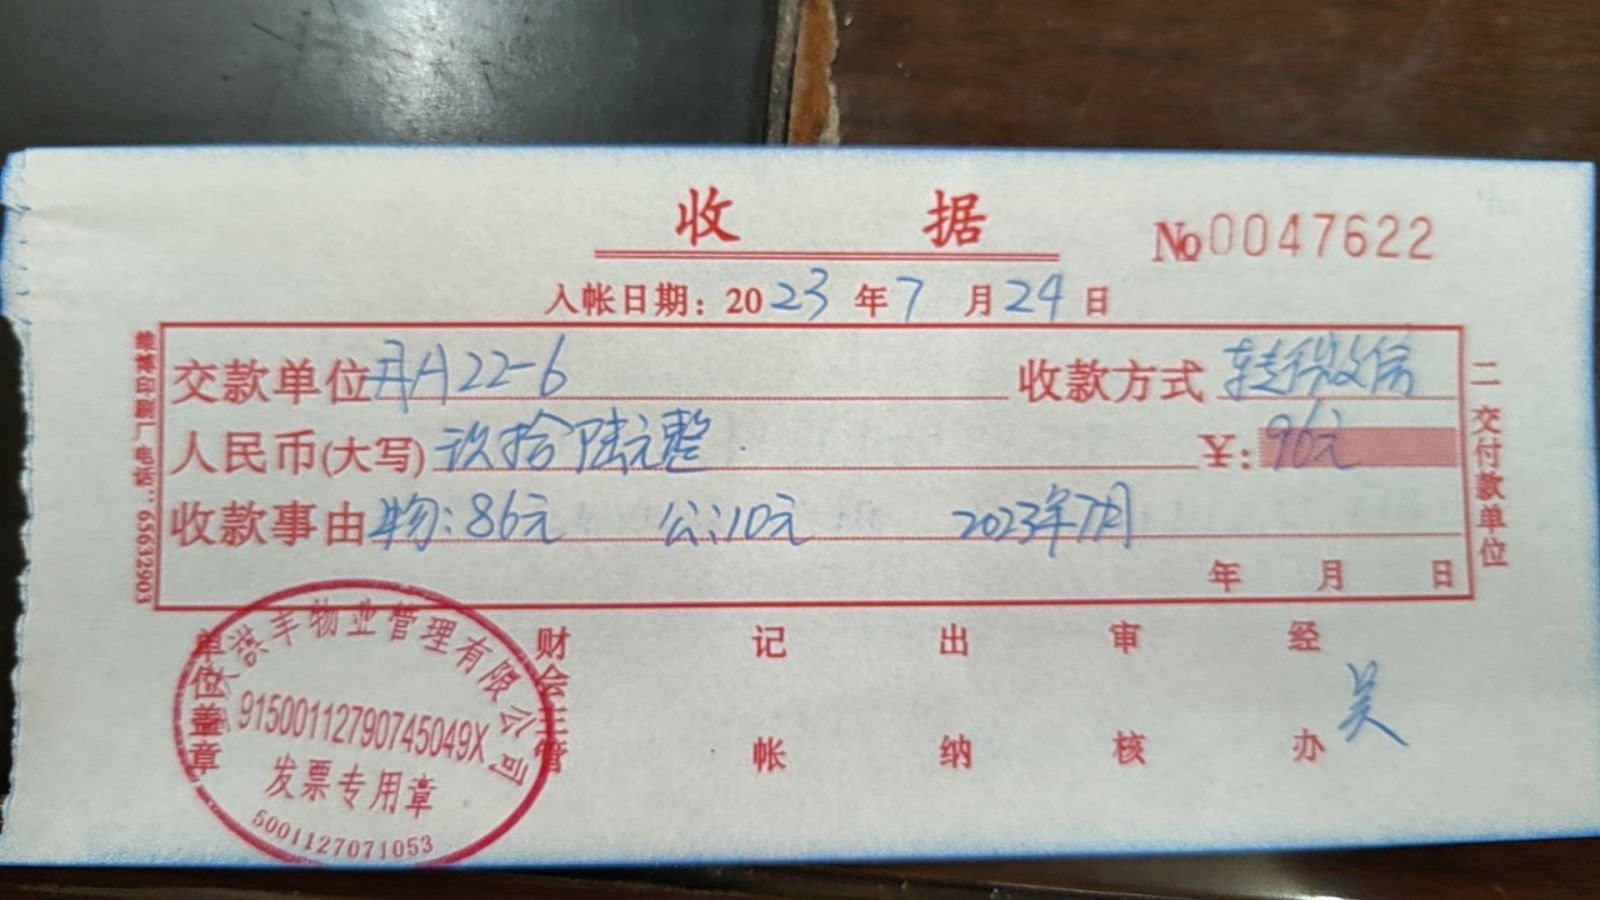 收 据
№0047622
入帐日期：2023年7月24日
交款单位 A22-6 收款方式 转 微信
人民币(大写) 玖拾陆元整
¥: 96元
收款事由 物:86元 公:10元 2023年7月
年 月 日
二 交付款单位
维博印刷厂 电话：65632903
单位盖章 财会主管 记帐 出纳 审核 经办 吴
洪羊物业管理有限公司
91500112790745049X
发票专用章
5001127071053